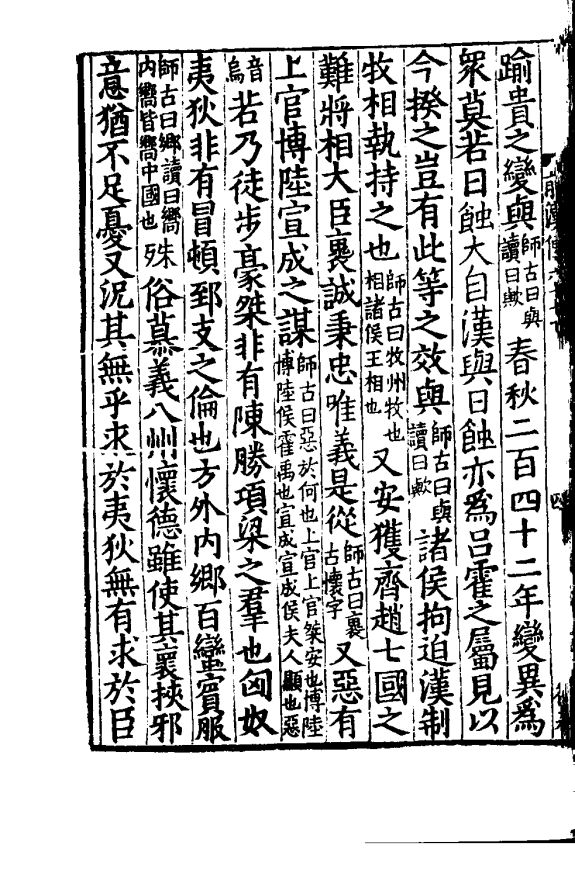 踰貴之變與師古曰與讀曰歟春秋二百四十二年變異爲
衆莫若日蝕大自漢與日蝕亦爲吕霍之屬見以
今揆之豈有此等之效與師古曰與讀曰歟諸侯拘迫漢制
牧相執持之也師古曰牧州牧也相諸侯王相也又安獲齊趙七國之
難將相大臣褱誠秉忠唯義是從師古曰褱古懷字又惡有
上官博陸宣成之謀師古曰惡於何也上官上官桀安也博陸博陸侯霍禹也宣成宣成侯夫人顯也惡
音烏若乃徒步豪桀非有陳勝項梁之羣也匈奴
夷狄非有冒頓郅支之倫也方外内鄉百蠻賓服
師古曰鄉讀曰嚮内嚮皆嚮中國也殊俗慕義八州懷德雖使其褱挾邪
意猶不足憂又況其無乎求於夷狄無有求於臣